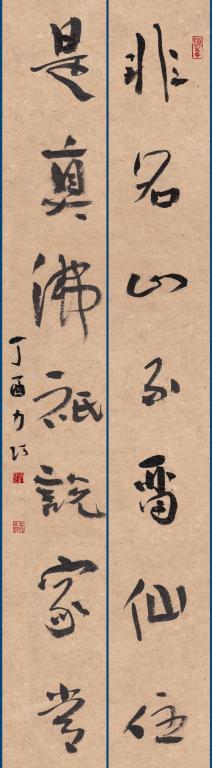 非名山不留仙住
是真佛祇說家常
丁酉